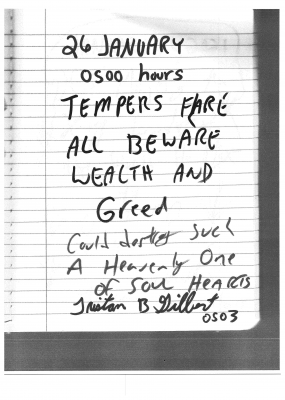 26 JANUARY
0500 hours
TEMPERS FARÉ
ALL BEWARE
WEALTH AND
Greed
Could such
A Heavenly One
of Soul HEARTS
Tristan B Gilbert
0503